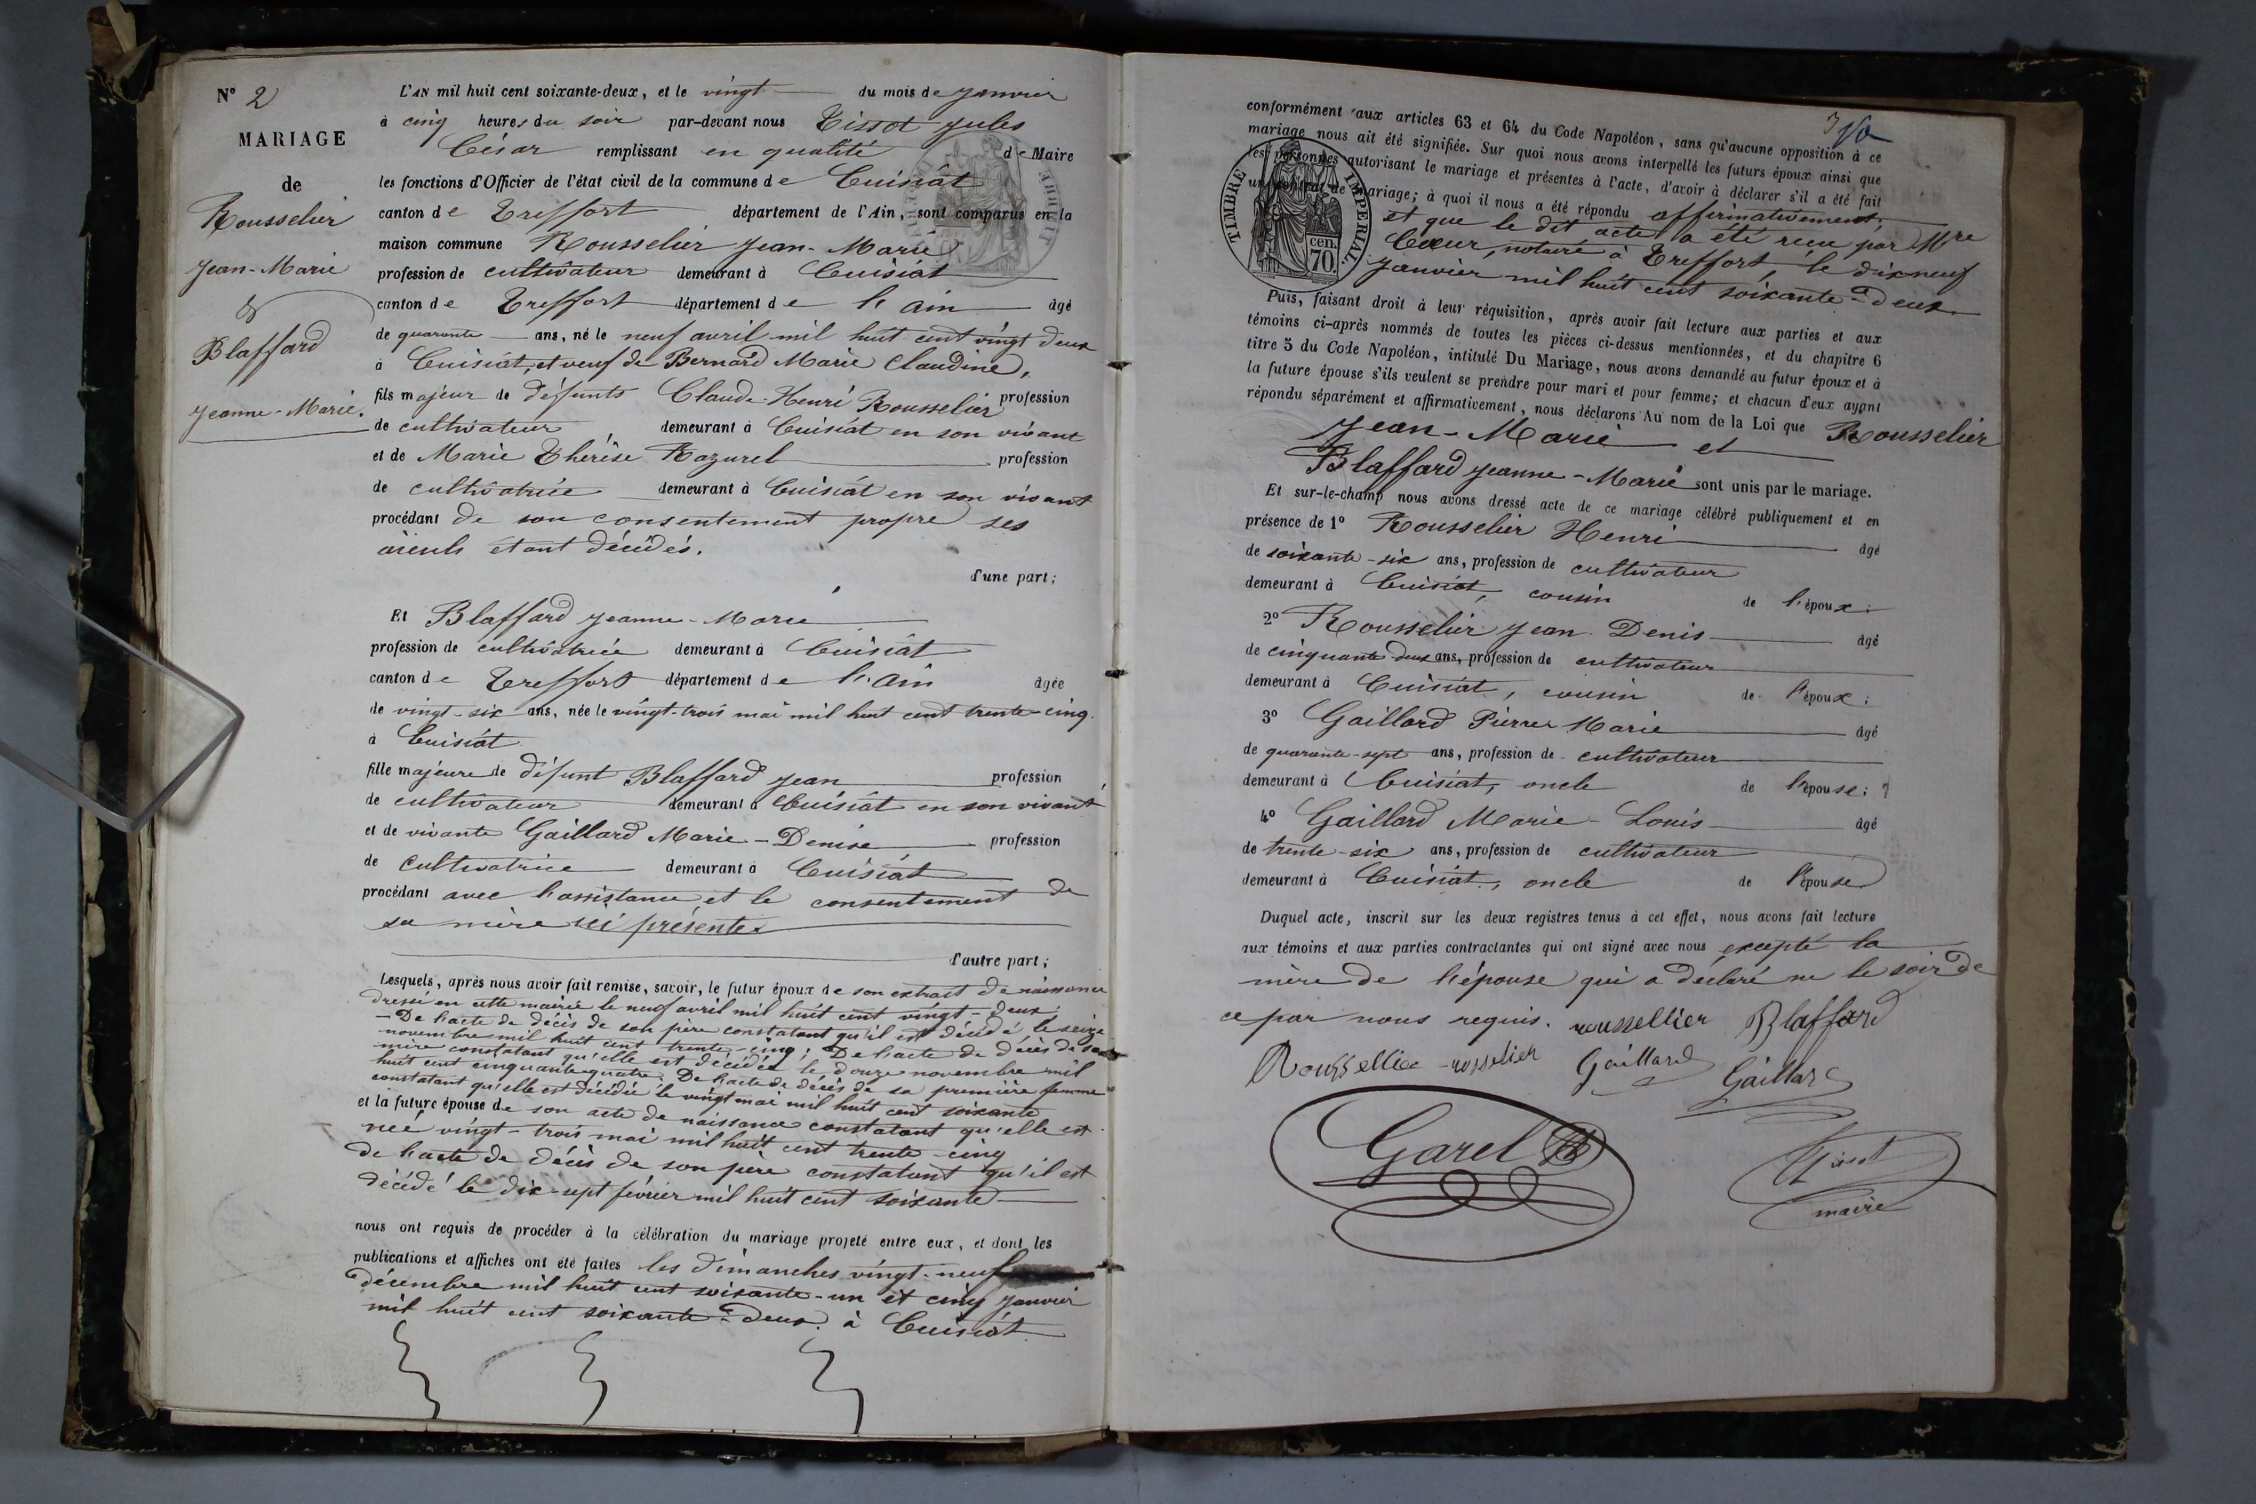 N° 2
MARIAGE
de
Rousselier
Jean-Marie
&
Blaffard
Jeanne-Marie.
L'AN mil huit cent soixante-deux, et le vingt du mois de Janvier
à cinq heures du soir par-devant nous Tissot Jules
César remplissant en qualité de Maire
les fonctions d'Officier de l'état civil de la commune de Cuisiat
canton de Treffort département de l'Ain, sont comparus en la
maison commune Rousselier Jean-Marie
profession de cultivateur demeurant à Cuisiat
canton de Treffort département de l'ain âgé
de quarante ans, né le neuf avril mil huit cent vingt deux
à Cuisiat, et veuf de Bernard Marie Claudine,
fils majeur de défunts Claude-Henri Rousselier profession
de cultivateur demeurant à Cuisiat en son vivant
et de Marie Thérèse Razurel profession
de cultivatrice demeurant à Cuisiat en son vivant
procédant de son consentement propre ses
aïeuls étant décédés.
d'une part;
Et Blaffard Jeanne-Marie
profession de cultivatrice demeurant à Cuisiat
canton de Treffort département de l'Ain âgée
de vingt-six ans, née le vingt-trois mai mil huit cent trente-cinq.
à Cuisiat
fille majeure de défunt Blaffard Jean profession
de cultivateur demeurant à Cuisiat en son vivant,
et de vivante Gaillard Marie-Denise profession
de Cultivatrice demeurant à Cuisiat
procédant avec l'assistance et le consentement de
sa mère ici présente.
d'autre part;
Lesquels, après nous avoir fait remise, savoir, le futur époux de son extrait de naissance
dressé en cette mairie le neuf avril mil huit cent vingt-deux;
- De l'acte de décès de son père constatant qu'il est décédé le seize
novembre mil huit cent trente-cinq; De l'acte de décès de sa
mère constatant qu'elle est décédée le douze novembre mil
huit cent cinquante quatre; De l'acte de décès de sa première femme
constatant qu'elle est décédée le vingt mai mil huit cent soixante
et la future épouse de son acte de naissance constatant qu'elle est
née vingt-trois mai mil huit cent trente-cinq
de l'acte de décès de son père constatant qu'il est
décédé le dix-sept février mil huit cent soixante
nous ont requis de procéder à la célébration du mariage projeté entre eux, et dont les
publications et affiches ont été faites les dimanches vingt-neuf
décembre mil huit cent soixante-un et cinq janvier
mil huit cent soixante-deux. à Cuisiat
conformément aux articles 63 et 64 du Code Napoléon, sans qu'aucune opposition à ce
mariage nous ait été signifiée. Sur quoi nous avons interpellé les futurs époux ainsi que
les personnes autorisant le mariage et présentes à l'acte, d'avoir à déclarer s'il a été fait
un contrat de mariage; à quoi il nous a été répondu affirmativement,
et que le dit acte a été reçu par Mre
Cœur, notaire à Treffort, le dix neuf
janvier mil huit cent soixante-deux.
TIMBRE IMPERIAL.
cen.
70.
Puis, faisant droit à leur réquisition, après avoir fait lecture aux parties et aux
témoins ci-après nommés de toutes les pièces ci-dessus mentionnées, et du chapitre 6
titre 5 du Code Napoléon, intitulé Du Mariage, nous avons demandé au futur époux et à
la future épouse s'ils veulent se prendre pour mari et pour femme; et chacun d'eux ayant
répondu séparément et affirmativement, nous déclarons Au nom de la Loi que Rousselier
Jean-Marie et
Blaffard Jeanne-Marie sont unis par le mariage.
Et sur-le-champ nous avons dressé acte de ce mariage célébré publiquement et en
présence de 1° Rousselier Henri âgé
de soixante-six ans, profession de cultivateur
demeurant à Cuisiat, cousin de l'époux;
2° Rousselier Jean Denis âgé
de cinquante deux ans, profession de cultivateur
demeurant à Cuisiat, cousin de l'époux;
3° Gaillard Pierre Marie âgé
de quarante-sept ans, profession de cultivateur
demeurant à Cuisiat, oncle de l'épouse;
4° Gaillard Marie-Louis âgé
de trente-six ans, profession de cultivateur
demeurant à Cuisiat, oncle de l'épouse
Duquel acte, inscrit sur les deux registres tenus à cet effet, nous avons fait lecture
aux témoins et aux parties contractantes qui ont signé avec nous excepté la
mère de l'épouse qui a déclaré ne le savoir de
ce par nous requis. rousselier Blaffard
Rousselier rousselier Gaillard Gaillard
Garel
Tissot
maire